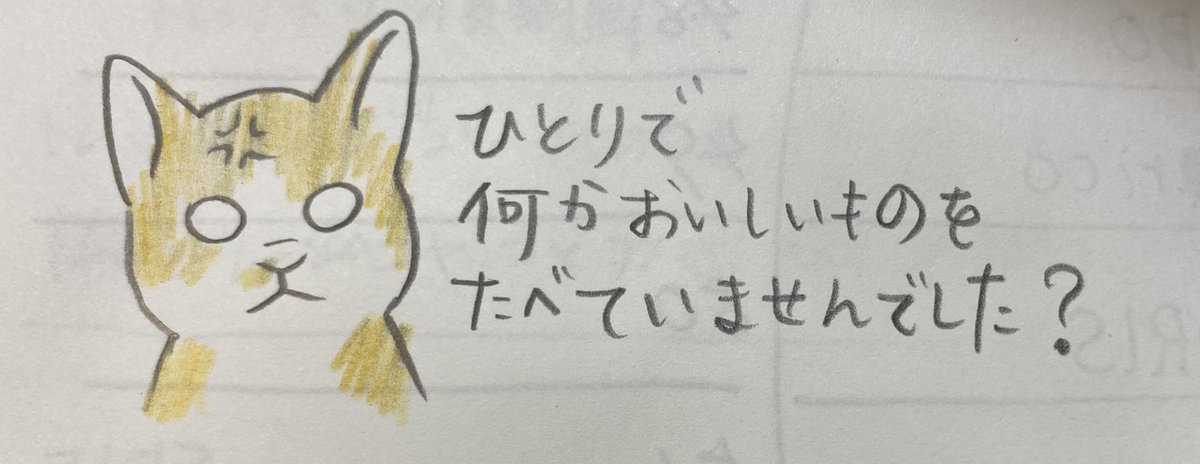 ひとりで
何かおいしいものを
たべていませんでした?